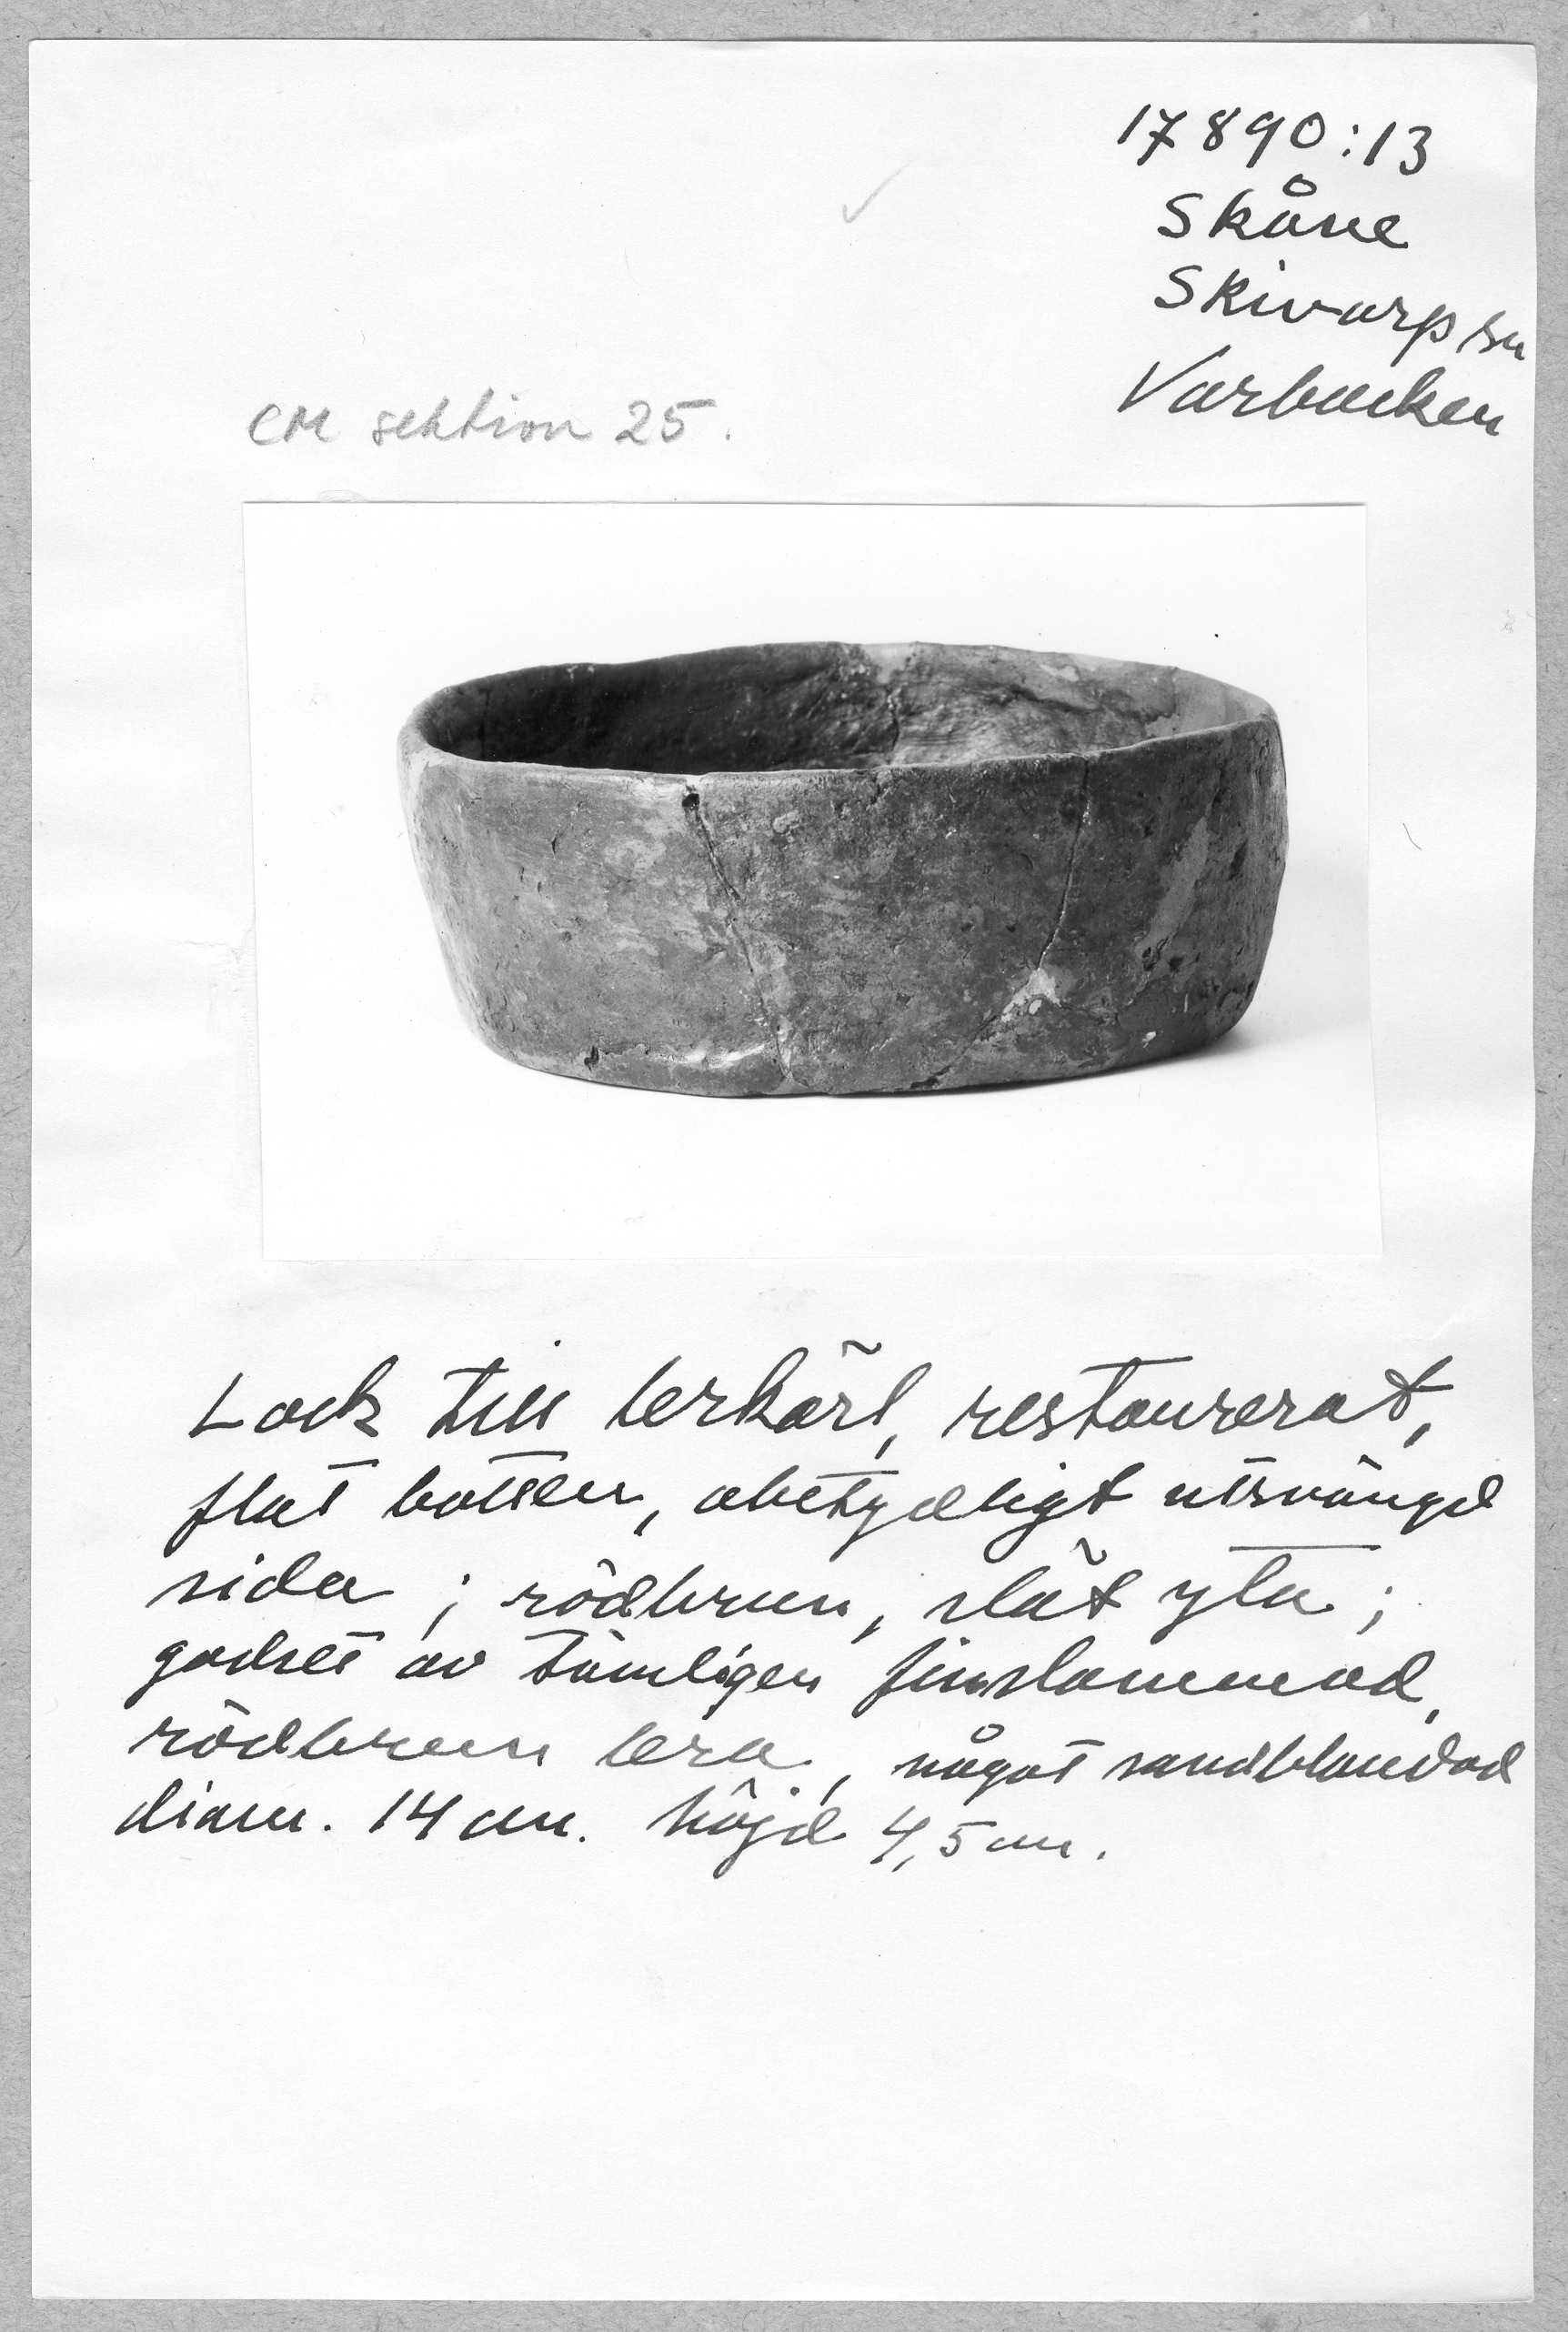 17890:13
Skåne
Skivarp sn
Varbacken
CM sektion 25.
Lock till lerkärl, restaurerat,
flat botten, obetydligt utsvängd
sida; rödbrun, slät yta;
godset av tämligen finslammad,
rödbrun lera, något sandblandad
diam. 14 cm. höjd 4,5 cm.